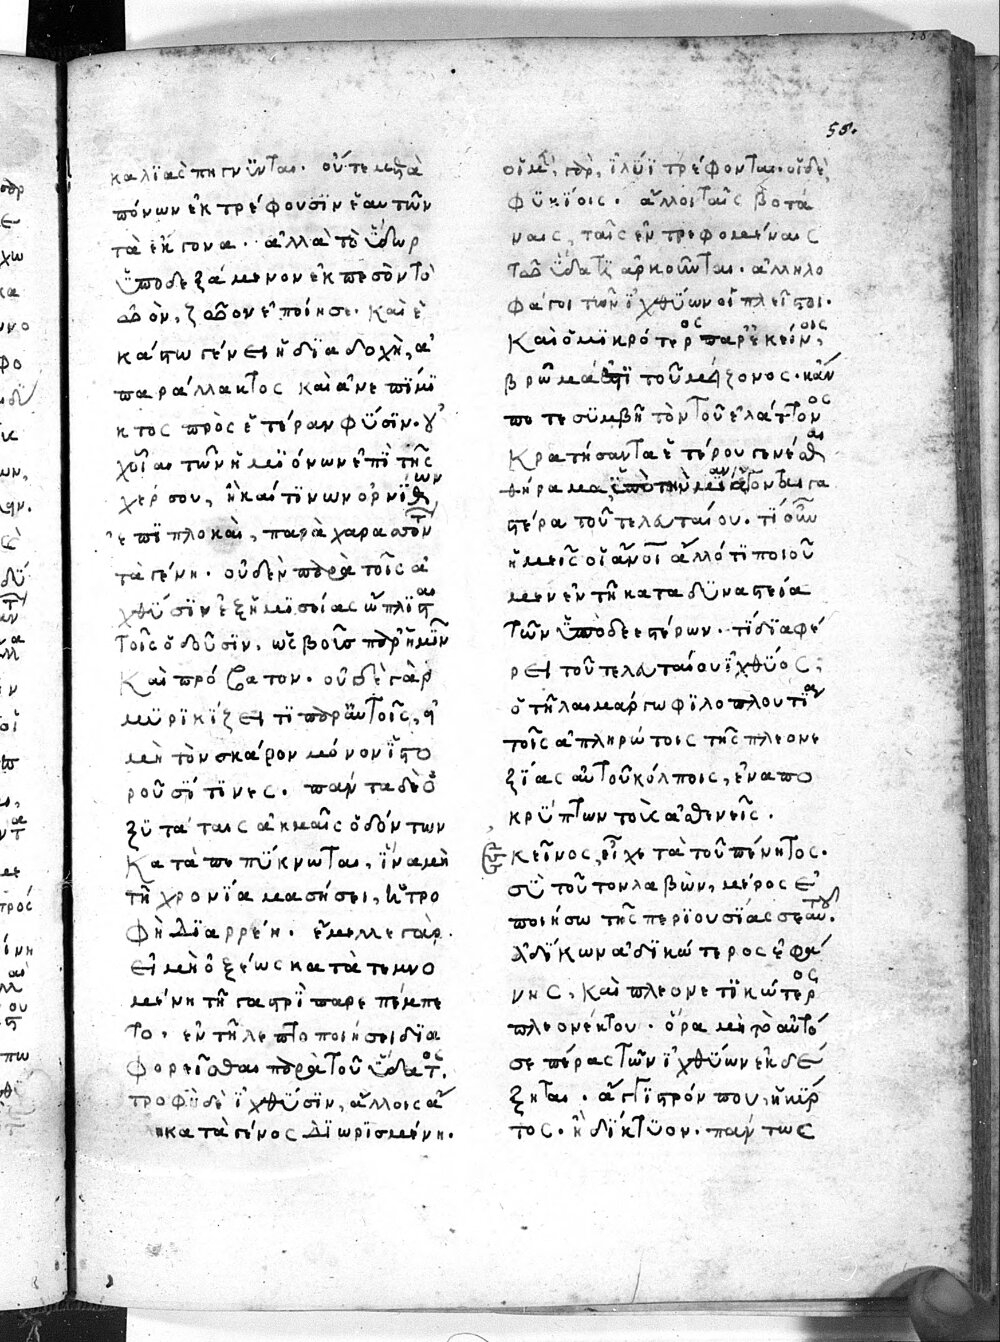 58.
καλϊὰς πηγνῦνται. οὔτε μετὰ
πόνων ἐκτρέφουσϊν ἑαυτῶν
τὰ ἔκγονα. ἀλλὰ τὸ ὕδωρ
ὑποδεξάμενον ἐκπεσὸν τὸ
ὠὸν, ζῶον ἐποίησε. Καὶ ἑ
κάστω γένει ἡ δϊαδοχὴ, ἀ
παράλλακτος καὶ ἀνεπϊμϊ
κτος πρὸς ἑτέραν φύσϊν. οὐ
χ οἷαι τῶν ἡμϊόνων ἐπὶ τῆς
χέρσου, ἢ καί τϊνων ὀρνίθων
ἐπϊπλοκαὶ, παραχαρασσόντων
τὰ γένη. οὐδὲν παρὰ τοῖς ἰ
χθύσϊν ἐξ ἡμϊσείας ὥπλϊσται
τοῖς ὀδοῦσϊν, ὡς βοῦς παρ' ἡμῖν
Καὶ πρόβατον. οὐδὲ γὰρ
μϋρϊκίζει τϊ παρ' αὐτοῖς, εἰ
μὴ τὸν σκάρον μόνον ἱστο
ροῦσί τϊνες. πάντα δὲ ὀ
ξϋτάταις ἀκμαῖς ὀδόντων
Καταπεπύκνωται, ἵνα μὴ
τῆ χρονία μασήσει, ἡ τρο
φὴ δϊαρρέη. ἔμελλε γὰρ.
εἰ μὴ ὀξέως κατατεμνο
μένη τῆ γαστρὶ παρεπέμπε
το. ἐν τῆ λεπτοποιήσει δϊα
φορεῖσθαι παρὰ τοῦ ὕδατος.
τροφὴ δὲ ἰχθύσϊν, ἄλλοις ἄλ
λη κατὰ γένος δϊωρϊσμένη.
οἱ μὲν γὰρ, ἰλύϊ τρέφονται. οἱ δὲ,
φϋκίοις. ἄλλοι ταῖς βοτά
ναις, ταῖς ἐντρεφομέναις
τῶ ὕδατϊ ἀρκοῦνται. ἀλληλο
φάγοι τῶν ἰχθύων οἱ πλεῖστοι.
Καὶ ὁ μϊκρότερος παρ' ἐκείνοις,
βρῶμά ἐστϊ τοῦ μείζονος. κἄν
ποτε σϋμβῆ τὸν τοῦ ἐλάττονος
Κρατήσαντα ἑτέρου γενέσθαι
θήραμα, ὑπὸ τὴν μίαν ἄγονται γα
στέρα τοῦ τελευταίου. τί οὖν
ἡμεῖς οἱ ἄνοι ἄλλό τϊ ποιοῦ
μεν ἐν τῆ καταδϋναστεία
τῶν ὑποδεεστέρων. τί δϊαφέ
ρει τοῦ τελευταίου ἰχθύος;
ὁ τῆ λαιμάργω φϊλοπλουτϊαν
τοῖς ἀπληρώτοις τῆς πλεονε
ξίας αὐτοῦ κόλποις, ἐναπο
κρύπτων τοὺς ἀσθενεῖς.
Ἐκεῖνος, εἶχε τὰ τοῦ πένητος.
σὺ τοῦτον λαβὼν, μέρος ἐ
ποιήσω τῆς περϊουσίας σεαυτοῦ.
Ἀδίκων ἀδϊκώτερος ἐφά
νης, Καὶ πλεονεκτϊκώτερος
πλεονέκτου. ὅρα μὴ τὸ αὐτό
σε πέρας τῶν ἰχθύων ἐκδέ
ξηται. ἄγκϊστρόν που, ἢ κύρ
τος. ἢ δίκτϋον. πάντως